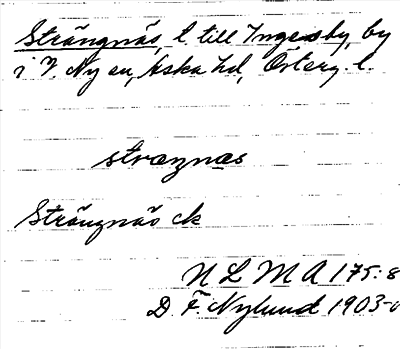 Strängnäs, t. till Ingersby, by
i V. Ny sn, Aska hd, Österg. l.
stræŋnæs
Strängnäs ck
N L M A 175:8
D. F. Nylund 1903-0